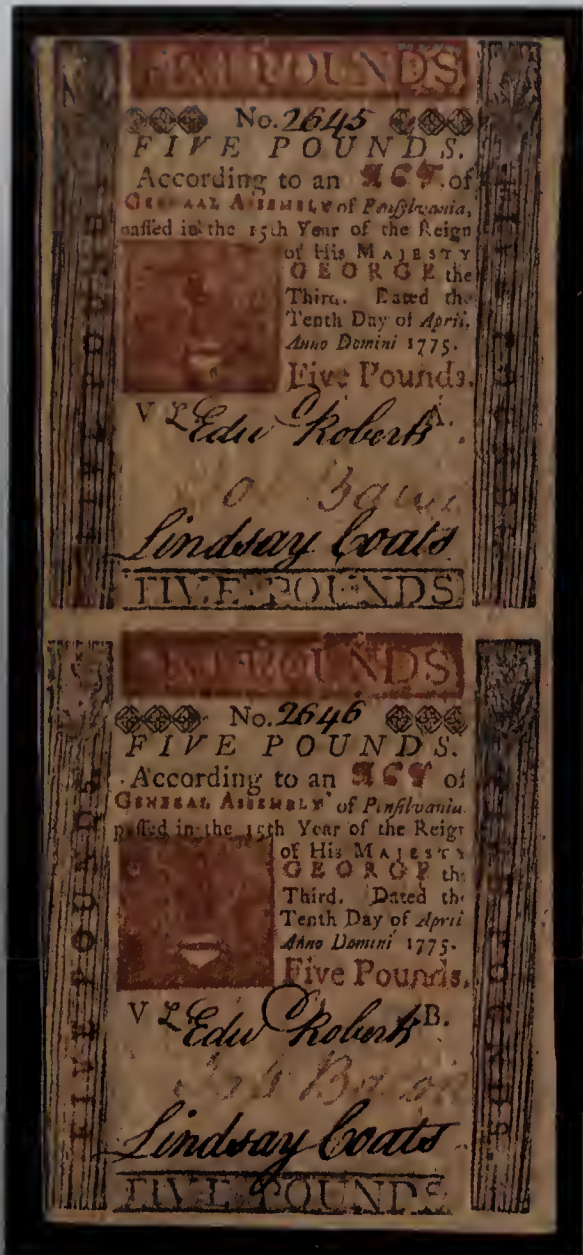 POUNDS
No. 2645
FIVE POUNDS.
According to an ACT of
GENERAL ASSEMBLY of Penſylvania,
paſſed in the 15th Year of the Reign
of His MAJESTY
GEORGE the
Third. Dated the
Tenth Day of April,
Anno Domini 1775.
Five Pounds.
V L Edw Roberts A.
Lindsay Coats
FIVE POUNDS
POUNDS
No. 2646
FIVE POUNDS.
According to an ACT of
GENERAL ASSEMBLY of Penſilvania
paſſed in the 15th Year of the Reign
of His MAJESTY
GEORGE the
Third. Dated the
Tenth Day of April
Anno Domini 1775.
Five Pounds.
V L Edw Roberts B.
Lindsay Coats
FIVE POUNDS
FIVE POUNDS